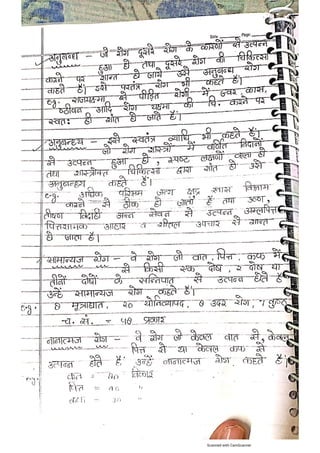 अनुबन्ध - जो रोग दूसरे रोग के कारणो से उत्पन्न
हुआ हो तथा दूसरे रोग की चिकित्सा
करने पर शान्त हो जाये उसे अनुबन्ध रोग
कहते है। इसे परतंत्र रोग भी कहते है।
e.g: राजयक्ष्मा से पीड़ित रोगी में ज्वर, कास,
ष्ठीवन आदि रोग यक्ष्मा की चि. करने पर
स्वतः ही शांत हो जाते है।
अनुबन्ध्य - इसे स्वतंत्र व्याधि भी कहते है।
जो रोग शास्त्रों में वर्णित निदानो
से उत्पन्न हुआ हो, स्पष्ट लक्षणों वाला हो
तथा शास्त्रोक्त चिकित्सा द्वारा शांत हो उसे
अनुबन्ध्य कहते है।
e.g: अधिक परिश्रम जन्य क्षुद्र श्वास विश्राम
करने से ठीक हो जाता है तथा
तीक्ष्ण विदाही अन्न सेवन से उत्पन्न अम्लपित्त
पित्तशामक आहार व शीतल उपचार से शान्त
हो जाता है।
सामान्यज रोग - वे रोग जो वात, पित्त, कफ में
से किसी एक दोष, २ दोष या
तीनों दोषों के सन्निपात से उत्पन्न होते है
उन्हें सामान्यज रोग कहते है।
e.g: ८ मूत्राघात, २० योनिव्यापद, ८ उदर रोग, 7 कुष्ठ
च. सं. = ५६ प्रकार
नानात्मज रोग - वे रोग जो केवल वात से, केवल
पित्त से या केवल कफ से
उत्पन्न होते हैं उन्हें नानात्मज रोग कहते है।
e.g: वात = ८० विकार
पित्त = ४० "
कफ = २० "
Scanned with CamScanner